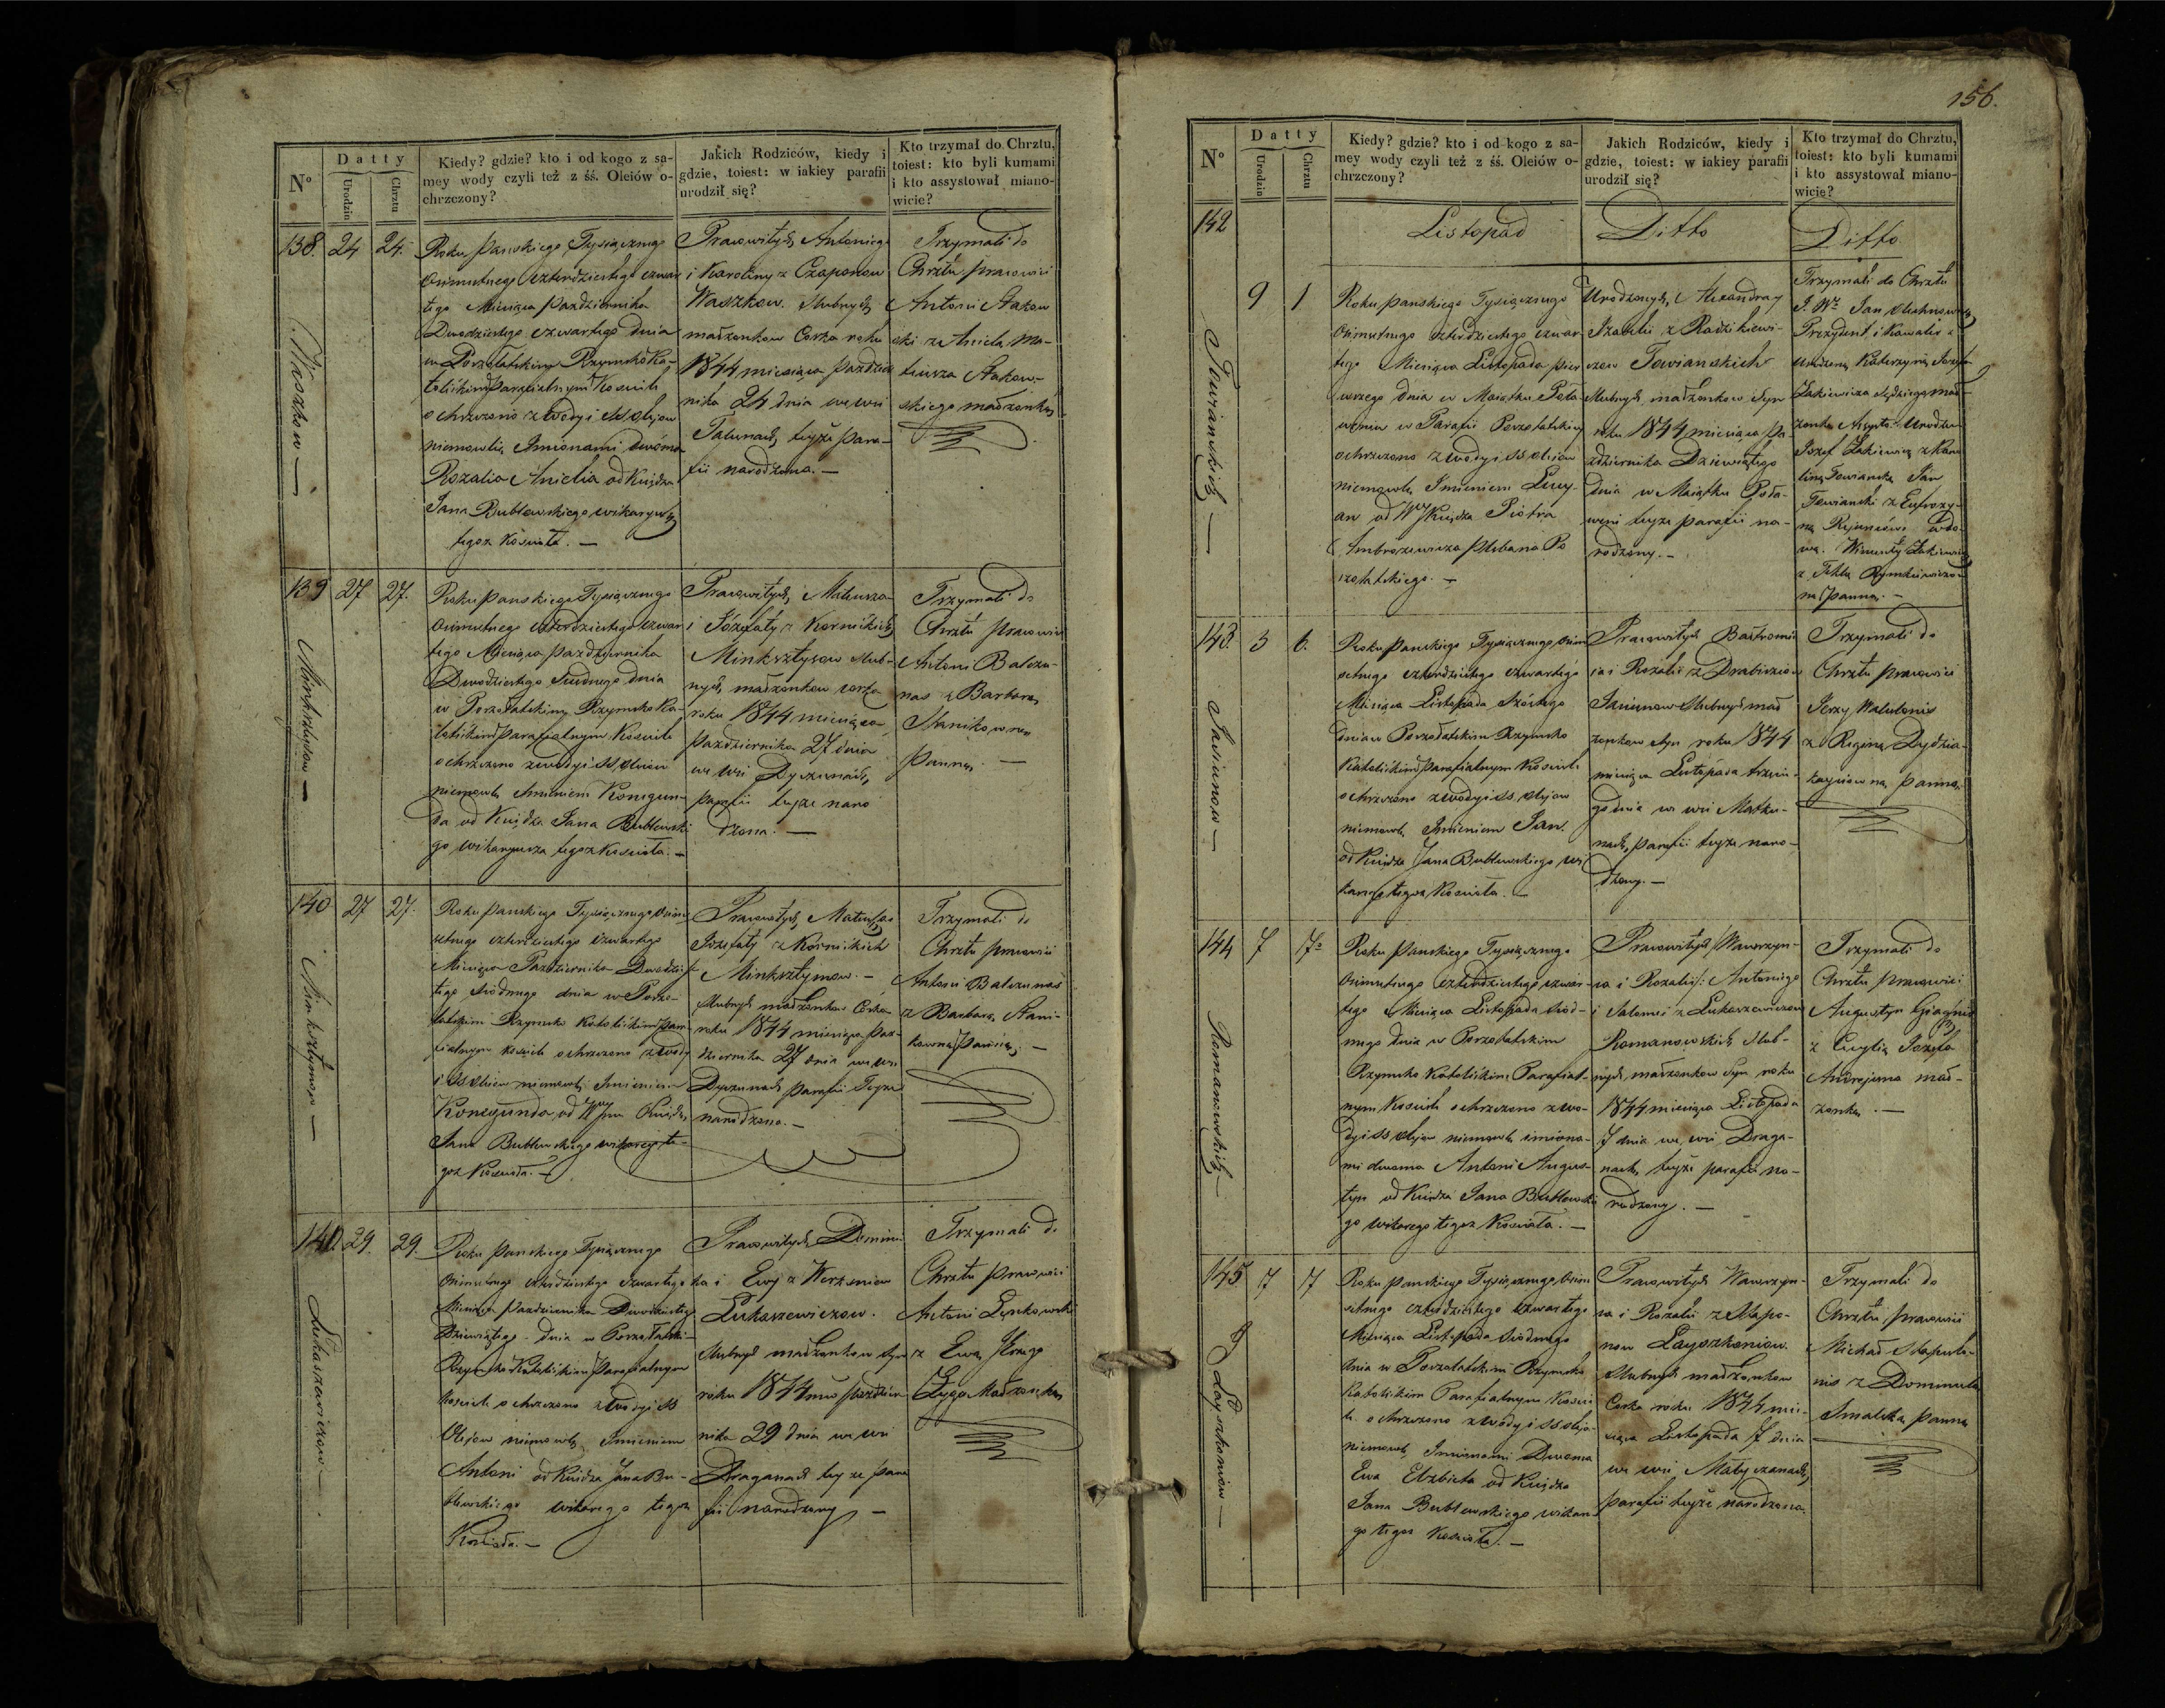 N°
Datty
Urodzin
Chrztu
Kiedy? gdzie? kto i od kogo z sa-
mey wody czyli też z śś. Oleiów o-
chrzczony?
Jakich Rodziców, kiedy i
gdzie, toiest: w iakiey parafii
urodził się?
Kto trzymał do Chrztu,
toiest: kto byli kumami
i kto assystował miano-
wicie?
138. 24 24.
Waszkow —
Roku Panskiego Tysiącznego
osimsetnego czterdziestego czwar
tego Miesiąca Pazdziernika
Dwudziestego czwartego dnia
w Poszołatskim Rzymsko Ka-
tolickim Parafialnym Kosciele
ochrzczono z wody i SS olejow
niemowlę Imionami dwóma
Rozalia Anielia od Księdza
Jana Bublewskiego wikaryusz
tegoż Koscioła. —
Pracowitych Antoniego
i Karoliny z Czaponow
Waszkow. Slubnych
małżonkow Corka roku
1844 miesiąca Pazdzier
nika 24 dnia we wsi
Talunach teyże Para-
fii narodzona. —
Trzymali do
Chrztu pracowici
Antoni Stakow
ski z Anielą Ma-
teusza Stakow-
skiego małżonką
139 27 27.
Minksztysow —
Roku Panskiego Tysiącznego
osimsetnego czterdziestego czwar
tego Miesiąca Pazdziernika
Dwudziestego Siudmego dnia
w Poszołatskim Rzymsko Ka-
tolickim Parafialnym Kosciele
ochrzczono z wody i SS. Olejow
niemowlę Imieniem Konegun-
da od Księdza Jana Bublewski
go wikaryusza tegoż Kosciola. —
Pracowitych Mateusza
i Józefaty z Kornickich
Minksztysow slub-
nych małżonkow corka
roku 1844 miesiąca
Pazdziernika 27 dnia
we wsi Dyczunach
Parafii teyże naro
dzona. —
Trzymali do
Chrztu Pracowici
Antoni Balczu-
nas z Barbarą
Stanikowną
Panną. —
140 27 27.
Minksztymow —
Roku Panskiego Tysiącznego Osim
setnego czterdziestego czwartego
Miesiąca Pazdziernika Dwudzies
tego siodmego dnia w Poszo-
łatskim Rzymsko Katolickim Para
fialnym kosciele ochrzczono z wody
i SS Olejow niemowlę Imieniem
Konegunda od Księdza
Jana Bublewskiego wikarego te-
goż Kosciola. —
Pracowitych Mateusza
Jozefaty z Kornickich
Minksztymow. —
slubnych małżonkow Córka
roku 1844 miesiąca Paz-
dziernika 27 dnia we wsi
Dyczunach Parafii Teyże
narodzona. —
Trzymali do
Chrztu pracowici
Antoni Balczunas
z Barbarą Stani-
kowną Panną. —
141. 29. 29.
Łukaszewiczow —
Roku Panskiego Tysiącznego
osimsetnego czterdziestego czwartego
Miesiąca Pazdziernika Dwudziestego
Dziewiątego dnia w Poszołatski
Rzymsko Katolickim Parafialnym
Kosciele ochrzczono z wody i SS
Olejow niemowlę Imieniem
Antoni od Księdza Jana Bu-
blewskiego wikarego tegoż
Kosciola. —
Pracowitych Domini
ka i Ewy z Werksniow
Łukaszewiczow.
slubnych małżonkow syn
roku 1844 Pazdzier
nika 29 dnia we wsi
Draganach teyże Para
fii narodzony —
Trzymali do
Chrztu pracowici
Antoni Lęnkowski
z Ewą
Małżonką
156.
N°
Datty
Urodzin
Chrztu
Kiedy? gdzie? kto i od kogo z sa-
mey wody czyli też z śś. Oleiów o-
chrzczony?
Jakich Rodziców, kiedy i
gdzie, toiest: w iakiey parafii
urodził się?
Kto trzymał do Chrztu,
toiest: kto byli kumami
i kto assystował miano-
wicie?
142
Listopad
Ditto
Ditto
9 1
Towianskich —
Roku panskiego Tysiącznego
Osimsetnego czterdziestego czwar-
tego Miesiąca Listopada pier
wszego dnia w Maiątku Poła-
weniu w Parafii Poszołatskiey
ochrzczono z wody i SS olejow
niemowlę Imieniem Lucy-
an od Księdza Piotra
Ambrożewicza Plebana Po
szołatskiego. —
Urodzonych Alexandra y
Izabelli z Radzikiewi-
czow Towianskich
slubnych małżonkow Syn
roku 1844 miesiąca Pa-
zdziernika Dziewiątego
dnia w Maiątku Poła-
weni teyże parafii na-
rodzony. —
Trzymali do Chrztu
J. W. Jan
Prezydent i Kawaler z
Urodzoną Katarzyną Jozefa
Żakiewicza Sędziego mał-
żonką Assysto: Urodzon
Jozef Żakiewicz z Karo
liną Towianską Jan
Towianski z Eufrozy-
ną wdo-
wą. Wincenty Żakiewicz
z Teklą Rymkiewiczow
ną Panną. —
143. 3 6.
Jasianow —
Roku Panskiego Tysiącznego Osim
setnego czterdziestego czwartego
Miesiąca Listopada Szóstego
dnia w Poszołatskim Rzymsko
Katolickim Parafialnym Kosciele
ochrzczono z wody i SS. olejow
niemowlę Imieniem Jan.
od Księdza Jana Bublewskiego wi
karego tegoż Kosciola. —
Pracowitych Bartromie
ia i Rozalii z Drabiszow
Jasianow Slubnych mał
żonkow Syn roku 1844
miesiąca Listopada trzecie-
go dnia we wsi Matku-
nach, parafii teyże naro-
dzony. —
Trzymali do
Chrztu pracowici
Jerzy Walulonis
z Reginą Dydzia-
kayciowną Panną
144 7 17
Romanowskich —
Roku Panskiego Tysiącznego
osimsetnego czterdziestego czwar-
tego Miesiąca Listopada siod-
mego dnia w Poszołatskim
Rzymsko Katolickim Parafial-
nym Kosciele ochrzczono z wo-
dy i SS olejow niemowlę imiona-
mi dwoma Antoni Augus-
tyn od Księdza Jana Bublewski
go wikarego tegoż Kosciola. —
Pracowitych Wawrzyn-
ca i Rozalii: Antoniego
i Salomei z Łukaszewiczow
Romanowskich Slub-
nych małżonkow Syn roku
1844 miesiąca Listopada
7 dnia we wsi Draga-
nach teyże parafii na-
rodzony. —
Trzymali do
Chrztu pracowici
Augustyn
z Cecylią Jozefa
Andrejuna mał-
żonką. —
145 7 7
Łayszkoniow —
Roku panskiego Tysiącznego Osim
setnego czterdziestego czwartego
Miesiąca Listopada siodmego
dnia w Poszołatskim Rzymsko
Katolickim Parafialnym Koscie
le ochrzczono z wody i SS olejo
niemowlę Imionami Dwoma
Ewa Elzbieta od Księdza
Jana Bublewskiego wikare
go tegoż Kosciola. —
Pracowitych Wawrzyn-
ca i Rozalii z Szapo-
now Łayszkoniow.
slubnych małżonkow
Corka roku 1844 mie-
siąca Listopada 7 dnia
we wsi Matyczanach,
parafii teyże narodzona.
Trzymali do
Chrztu pracowici
Michał Szapula-
nis z Dominulą
Smalską panną